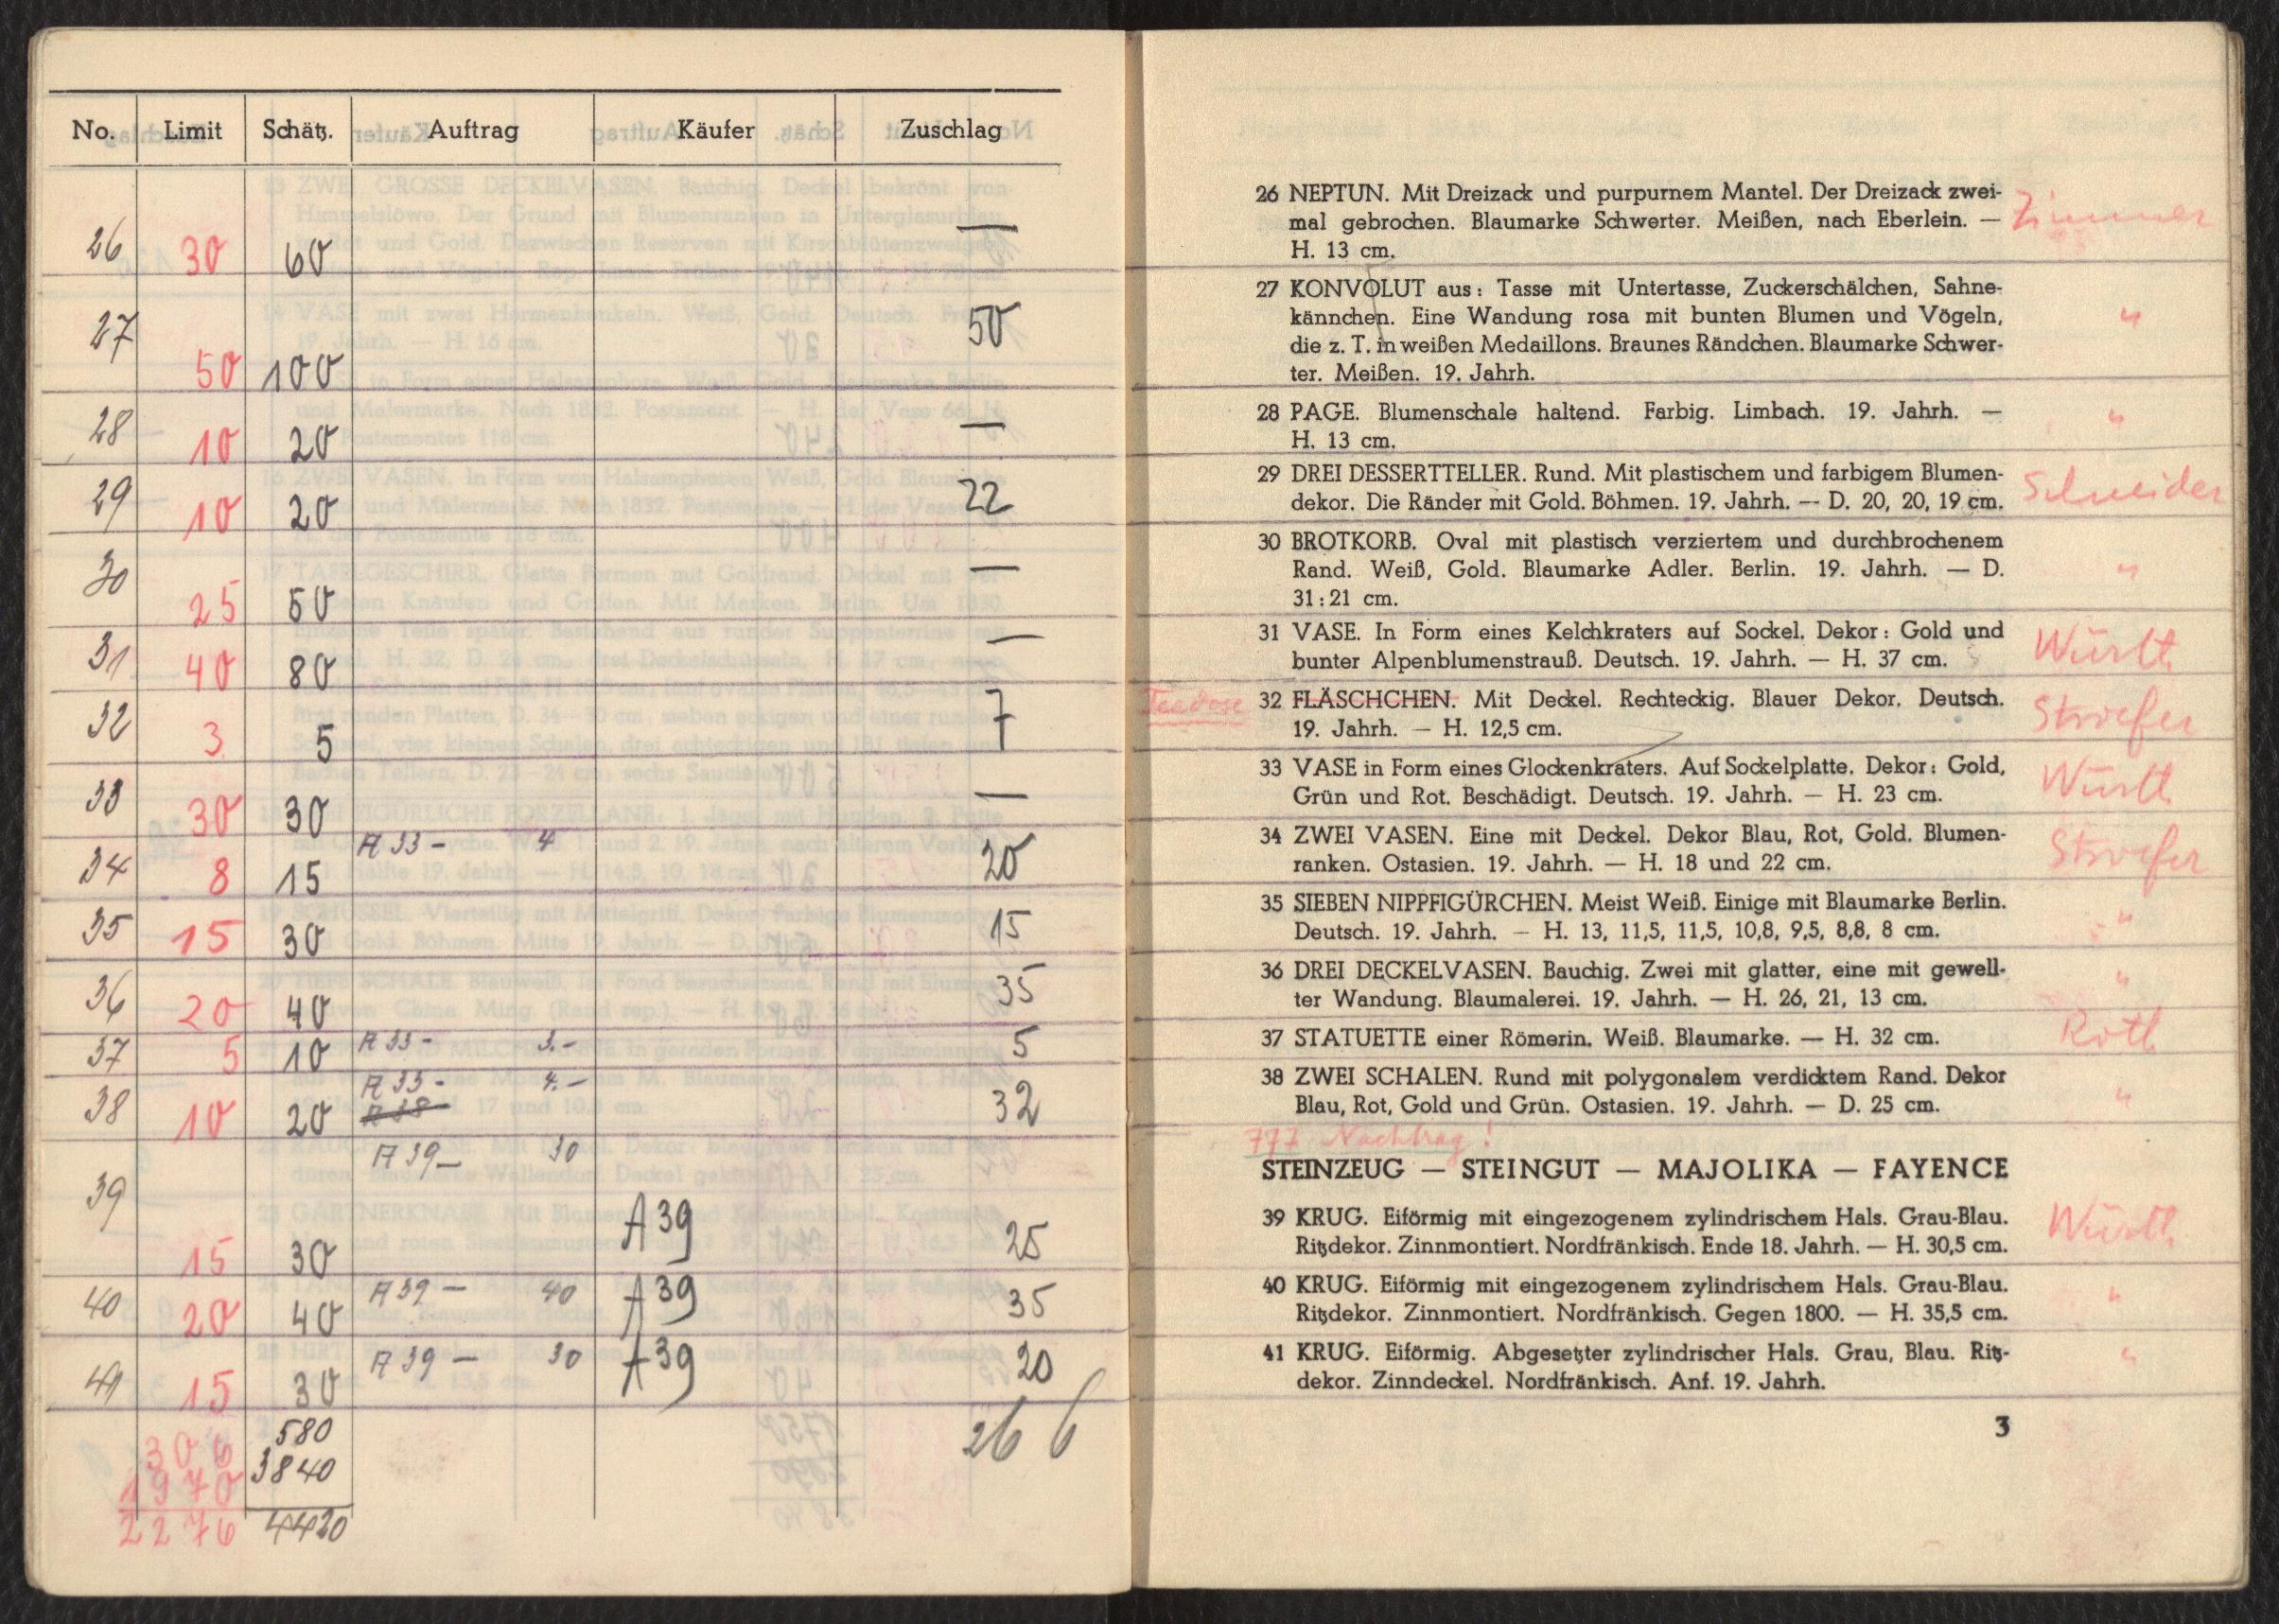 No. Limit Schätz. Auftrag Käufer Zuschlag
26 30 60 —
27 50 100 50
28 10 20 —
29 10 20 22
30 25 50 —
31 40 80 —
32 3 5 7
33 30 30 —
34 8 15 A 33 - 4 20
35 15 30 15
36 20 40 35
37 5 10 A 33 - 3.- 5
38 10 20 A 33 - 4.- 32
A 38
39 15 30 A 39 — 30 A 39 25
40 20 40 A 39 — 40 A 39 35
41 15 30 A 39 — 30 A 39 20
306 580 266
1970 3840
2276 4420
26 NEPTUN. Mit Dreizack und purpurnem Mantel. Der Dreizack zwei-
mal gebrochen. Blaumarke Schwerter. Meißen, nach Eberlein. — Zimmer
H. 13 cm.
27 KONVOLUT aus: Tasse mit Untertasse, Zuckerschälchen, Sahne-
kännchen. Eine Wandung rosa mit bunten Blumen und Vögeln, "
die z. T. in weißen Medaillons. Braunes Rändchen. Blaumarke Schwer-
ter. Meißen. 19. Jahrh.
28 PAGE. Blumenschale haltend. Farbig. Limbach. 19. Jahrh. — "
H. 13 cm.
29 DREI DESSERTTELLER. Rund. Mit plastischem und farbigem Blumen- Schneider
dekor. Die Ränder mit Gold. Böhmen. 19. Jahrh. — D. 20, 20, 19 cm.
30 BROTKORB. Oval mit plastisch verziertem und durchbrochenem
Rand. Weiß, Gold. Blaumarke Adler. Berlin. 19. Jahrh. — D. "
31:21 cm.
31 VASE. In Form eines Kelchkraters auf Sockel. Dekor: Gold und Württ.
bunter Alpenblumenstrauß. Deutsch. 19. Jahrh. — H. 37 cm.
Teedose 32 FLÄSCHCHEN. Mit Deckel. Rechteckig. Blauer Dekor. Deutsch. Stroefer
19. Jahrh. — H. 12,5 cm.
33 VASE in Form eines Glockenkraters. Auf Sockelplatte. Dekor: Gold, Württ.
Grün und Rot. Beschädigt. Deutsch. 19. Jahrh. — H. 23 cm.
34 ZWEI VASEN. Eine mit Deckel. Dekor Blau, Rot, Gold. Blumen- Stroefer
ranken. Ostasien. 19. Jahrh. — H. 18 und 22 cm.
35 SIEBEN NIPPFIGÜRCHEN. Meist Weiß. Einige mit Blaumarke Berlin. "
Deutsch. 19. Jahrh. — H. 13, 11,5, 11,5, 10,8, 9,5, 8,8, 8 cm.
36 DREI DECKELVASEN. Bauchig. Zwei mit glatter, eine mit gewell- "
ter Wandung. Blaumalerei. 19. Jahrh. — H. 26, 21, 13 cm.
37 STATUETTE einer Römerin. Weiß. Blaumarke. — H. 32 cm. Roth
38 ZWEI SCHALEN. Rund mit polygonalem verdicktem Rand. Dekor
Blau, Rot, Gold und Grün. Ostasien. 19. Jahrh. — D. 25 cm. "
777 Nachtrag!
STEINZEUG — STEINGUT — MAJOLIKA — FAYENCE
39 KRUG. Eiförmig mit eingezogenem zylindrischem Hals. Grau-Blau. Württ.
Ritzdekor. Zinnmontiert. Nordfränkisch. Ende 18. Jahrh. — H. 30,5 cm.
40 KRUG. Eiförmig mit eingezogenem zylindrischem Hals. Grau-Blau. "
Ritzdekor. Zinnmontiert. Nordfränkisch. Gegen 1800. — H. 35,5 cm.
41 KRUG. Eiförmig. Abgesetzter zylindrischer Hals. Grau, Blau. Ritz- "
dekor. Zinndeckel. Nordfränkisch. Anf. 19. Jahrh.
3